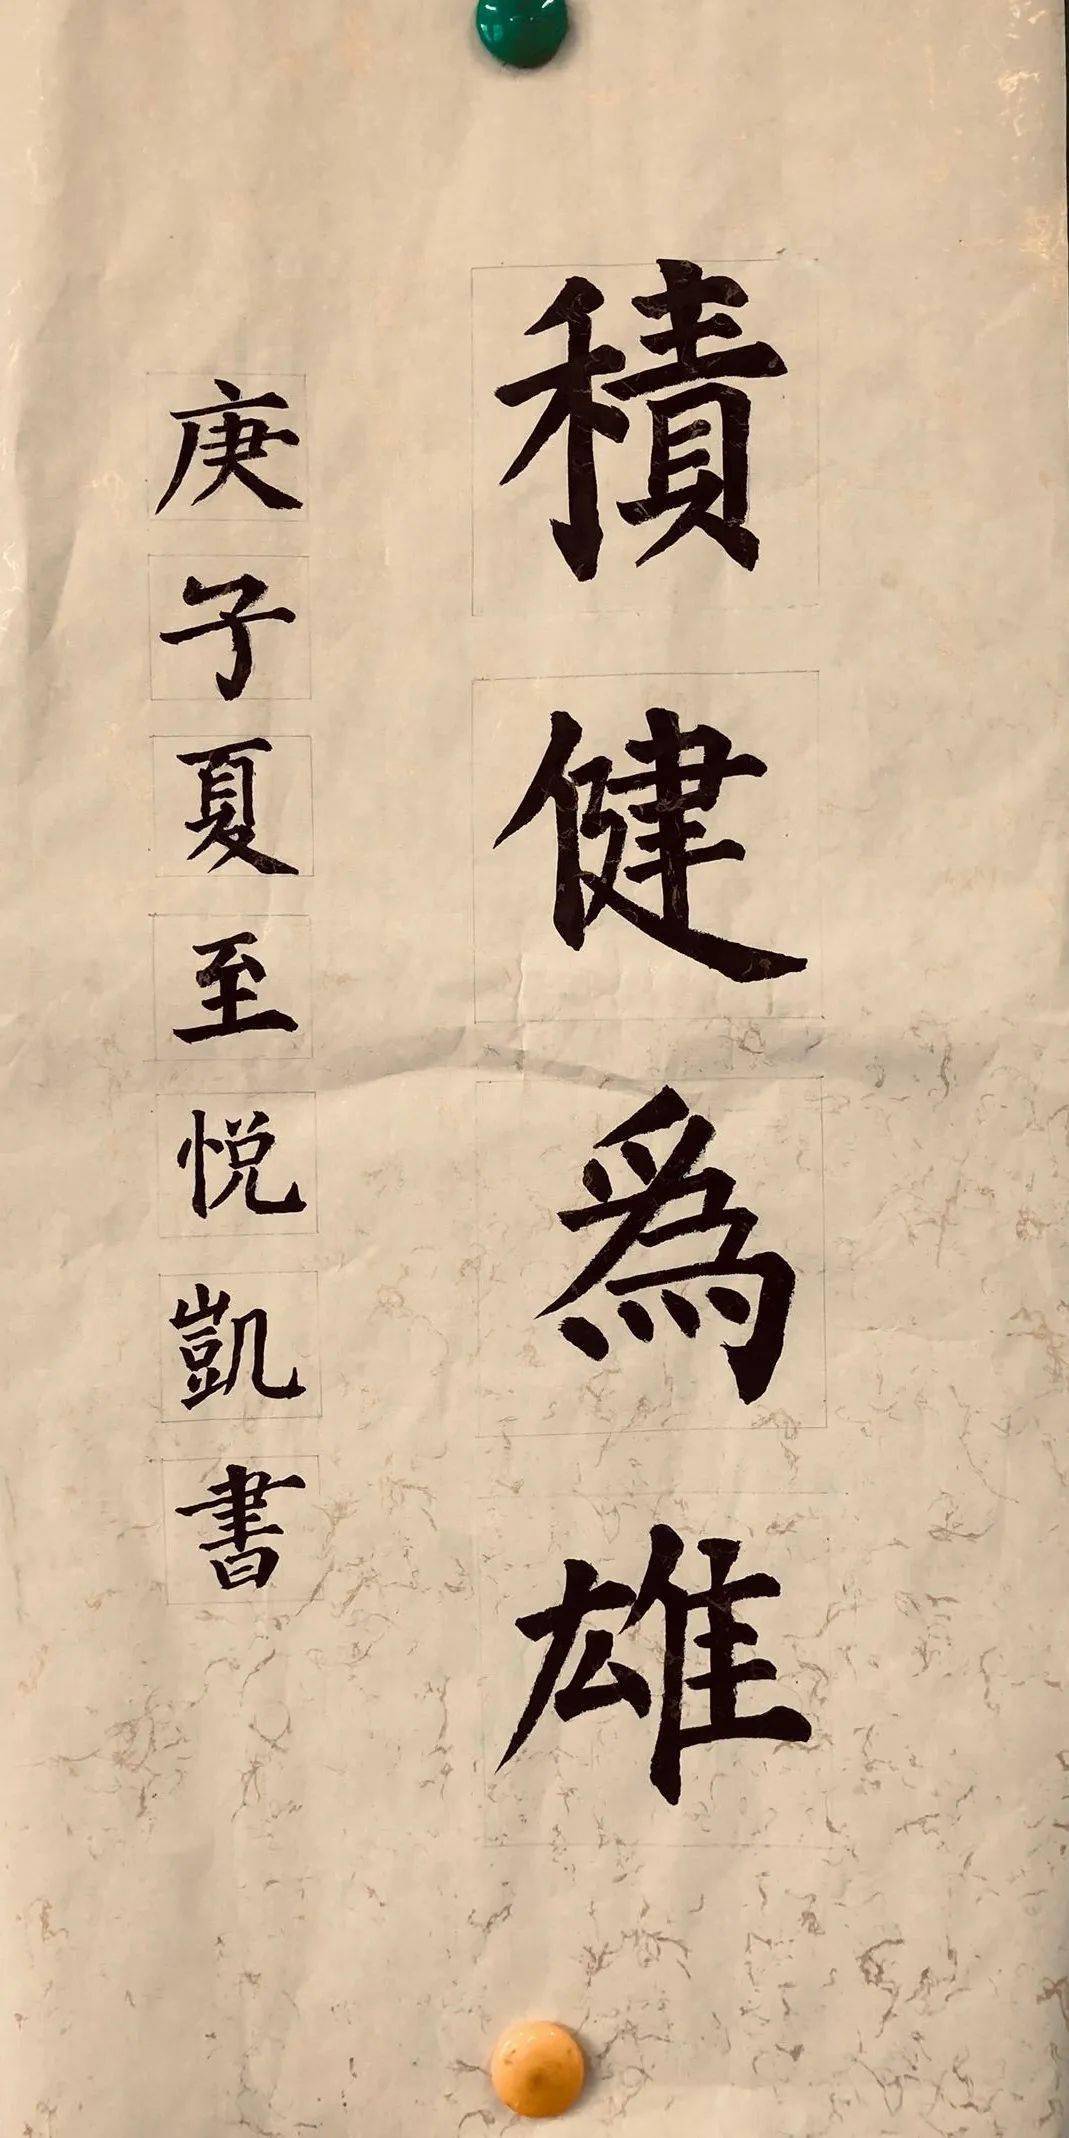 積健為雄
庚子夏至悦凱書